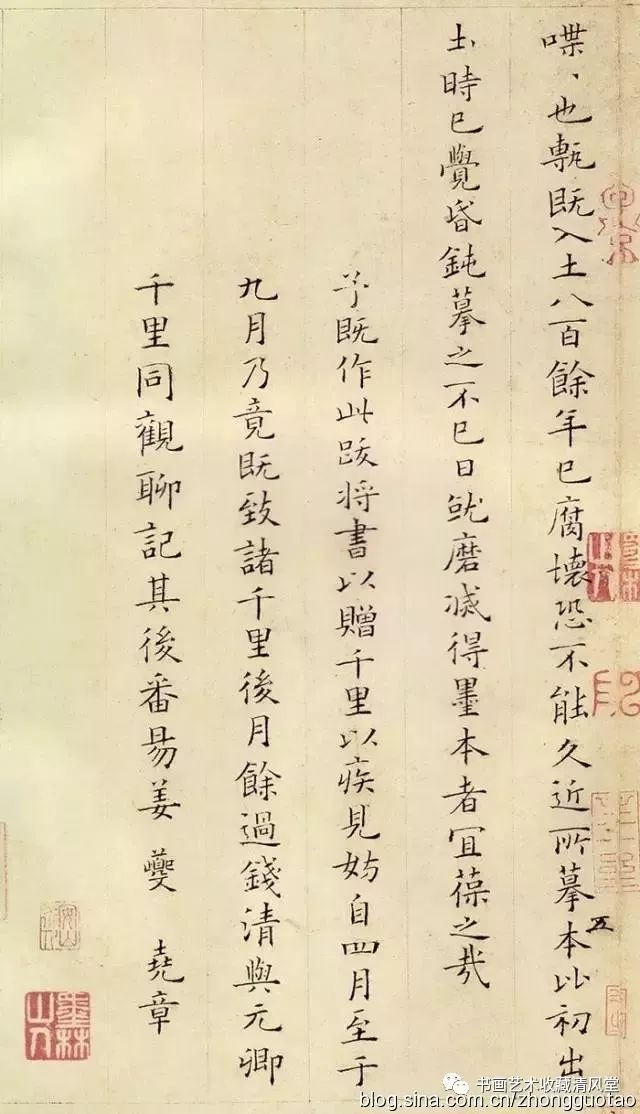 喋、也甎既入土八百餘年已腐壞恐不能久近所摹本比初出
土時已覺昏鈍摹之不已日就磨滅得墨本者宜葆之哉
予既作此跋将書以贈千里以疾見妨自四月至于
九月乃竟既致諸千里後月餘過錢清與元卿
千里同觀聊記其後番昜姜夔 堯章
五
墨林山人
书画艺术收藏清风堂
blog.sina.com.cn/zhongguotao